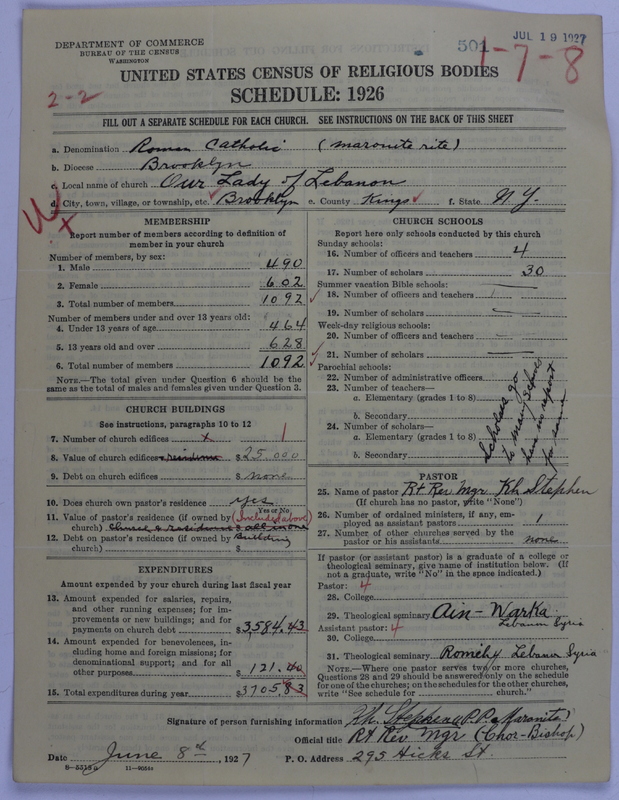 DEPARTMENT OF COMMERCE
BUREAU OF THE CENSUS
WASHINGTON
501
JUL 19 1927
1-7-8
2-2
UNITED STATES CENSUS OF RELIGIOUS BODIES
SCHEDULE: 1926
FILL OUT A SEPARATE SCHEDULE FOR EACH CHURCH. SEE INSTRUCTIONS ON THE BACK OF THIS SHEET
a. Denomination Roman Catholic (Maronite rite)
b. Diocese Brooklyn
c. Local name of church Our Lady of Lebanon
d. City, town, village, or township, etc. Brooklyn e. County Kings f. State N.Y.
MEMBERSHIP
Report number of members according to definition of
member in your church
Number of members, by sex:
1. Male 490
2. Female 602
3. Total number of members 1092
Number of members under and over 13 years old:
4. Under 13 years of age 464
5. 13 years old and over 628
6. Total number of members 1092
NOTE.—The total given under Question 6 should be
the same as the total of males and females given under Question 3.
CHURCH BUILDINGS
See instructions, paragraphs 10 to 12
7. Number of church edifices x 1
8. Value of church edifices & residence $25.000
9. Debt on church edifices $ none
10. Does church own pastor's residence yes
Yes or No
11. Value of pastor's residence (if owned by (Included above)
church) church & residence all in one
12. Debt on pastor's residence (if owned by Building
church) $
EXPENDITURES
Amount expended by your church during last fiscal year
13. Amount expended for salaries, repairs,
and other running expenses; for im-
provements or new buildings; and for
payments on church debt $3584.43
14. Amount expended for benevolences, in-
cluding home and foreign missions; for
denominational support; and for all
other purposes $121.40
15. Total expenditures during year $3705.83
CHURCH SCHOOLS
Report here only schools conducted by this church
Sunday schools:
16. Number of officers and teachers 4
17. Number of scholars 30
Summer vacation Bible schools:
18. Number of officers and teachers
19. Number of scholars —
Week-day religious schools:
20. Number of officers and teachers —
21. Number of scholars —
Parochial schools:
22. Number of administrative officers
23. Number of teachers—
a. Elementary (grades 1 to 8)
b. Secondary
24. Number of scholars—
a. Elementary (grades 1 to 8)
b. Secondary
Scholars go
to many schools
here no report
for same
PASTOR
25. Name of pastor Rt Rev. Mgr. Kh Stephen
(If church has no pastor, write "None")
26. Number of ordained ministers, if any, em-
ployed as assistant pastors 1
27. Number of other churches served by the
pastor or his assistants none
If pastor (or assistant pastor) is a graduate of a college or
theological seminary, give name of institution below. (If
not a graduate, write "No" in the space indicated.)
Pastor: 4
28. College
29. Theological seminary Ain-Warka
Lebanon Syria
Assistant pastor: 4
30. College
31. Theological seminary Lebanon Syria
NOTE.—Where one pastor serves two or more churches,
Questions 28 and 29 should be answered only on the schedule
for one of the churches; on the schedules for the other churches,
write "See schedule for church."
Signature of person furnishing information Kh. Stephen (P.P. a Maronite)
Official title Rt Rev. Mgr (Chor-Bishop)
Date June 8th, 1927 P. O. Address 295 Hicks St.
8-5313a 11-9055a